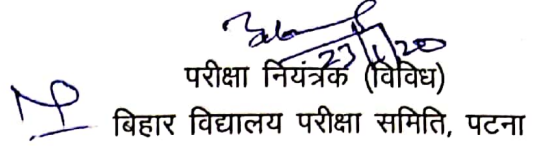 23/1/20
परीक्षा नियंत्रक (विविध)
बिहार विद्यालय परीक्षा समिति, पटना